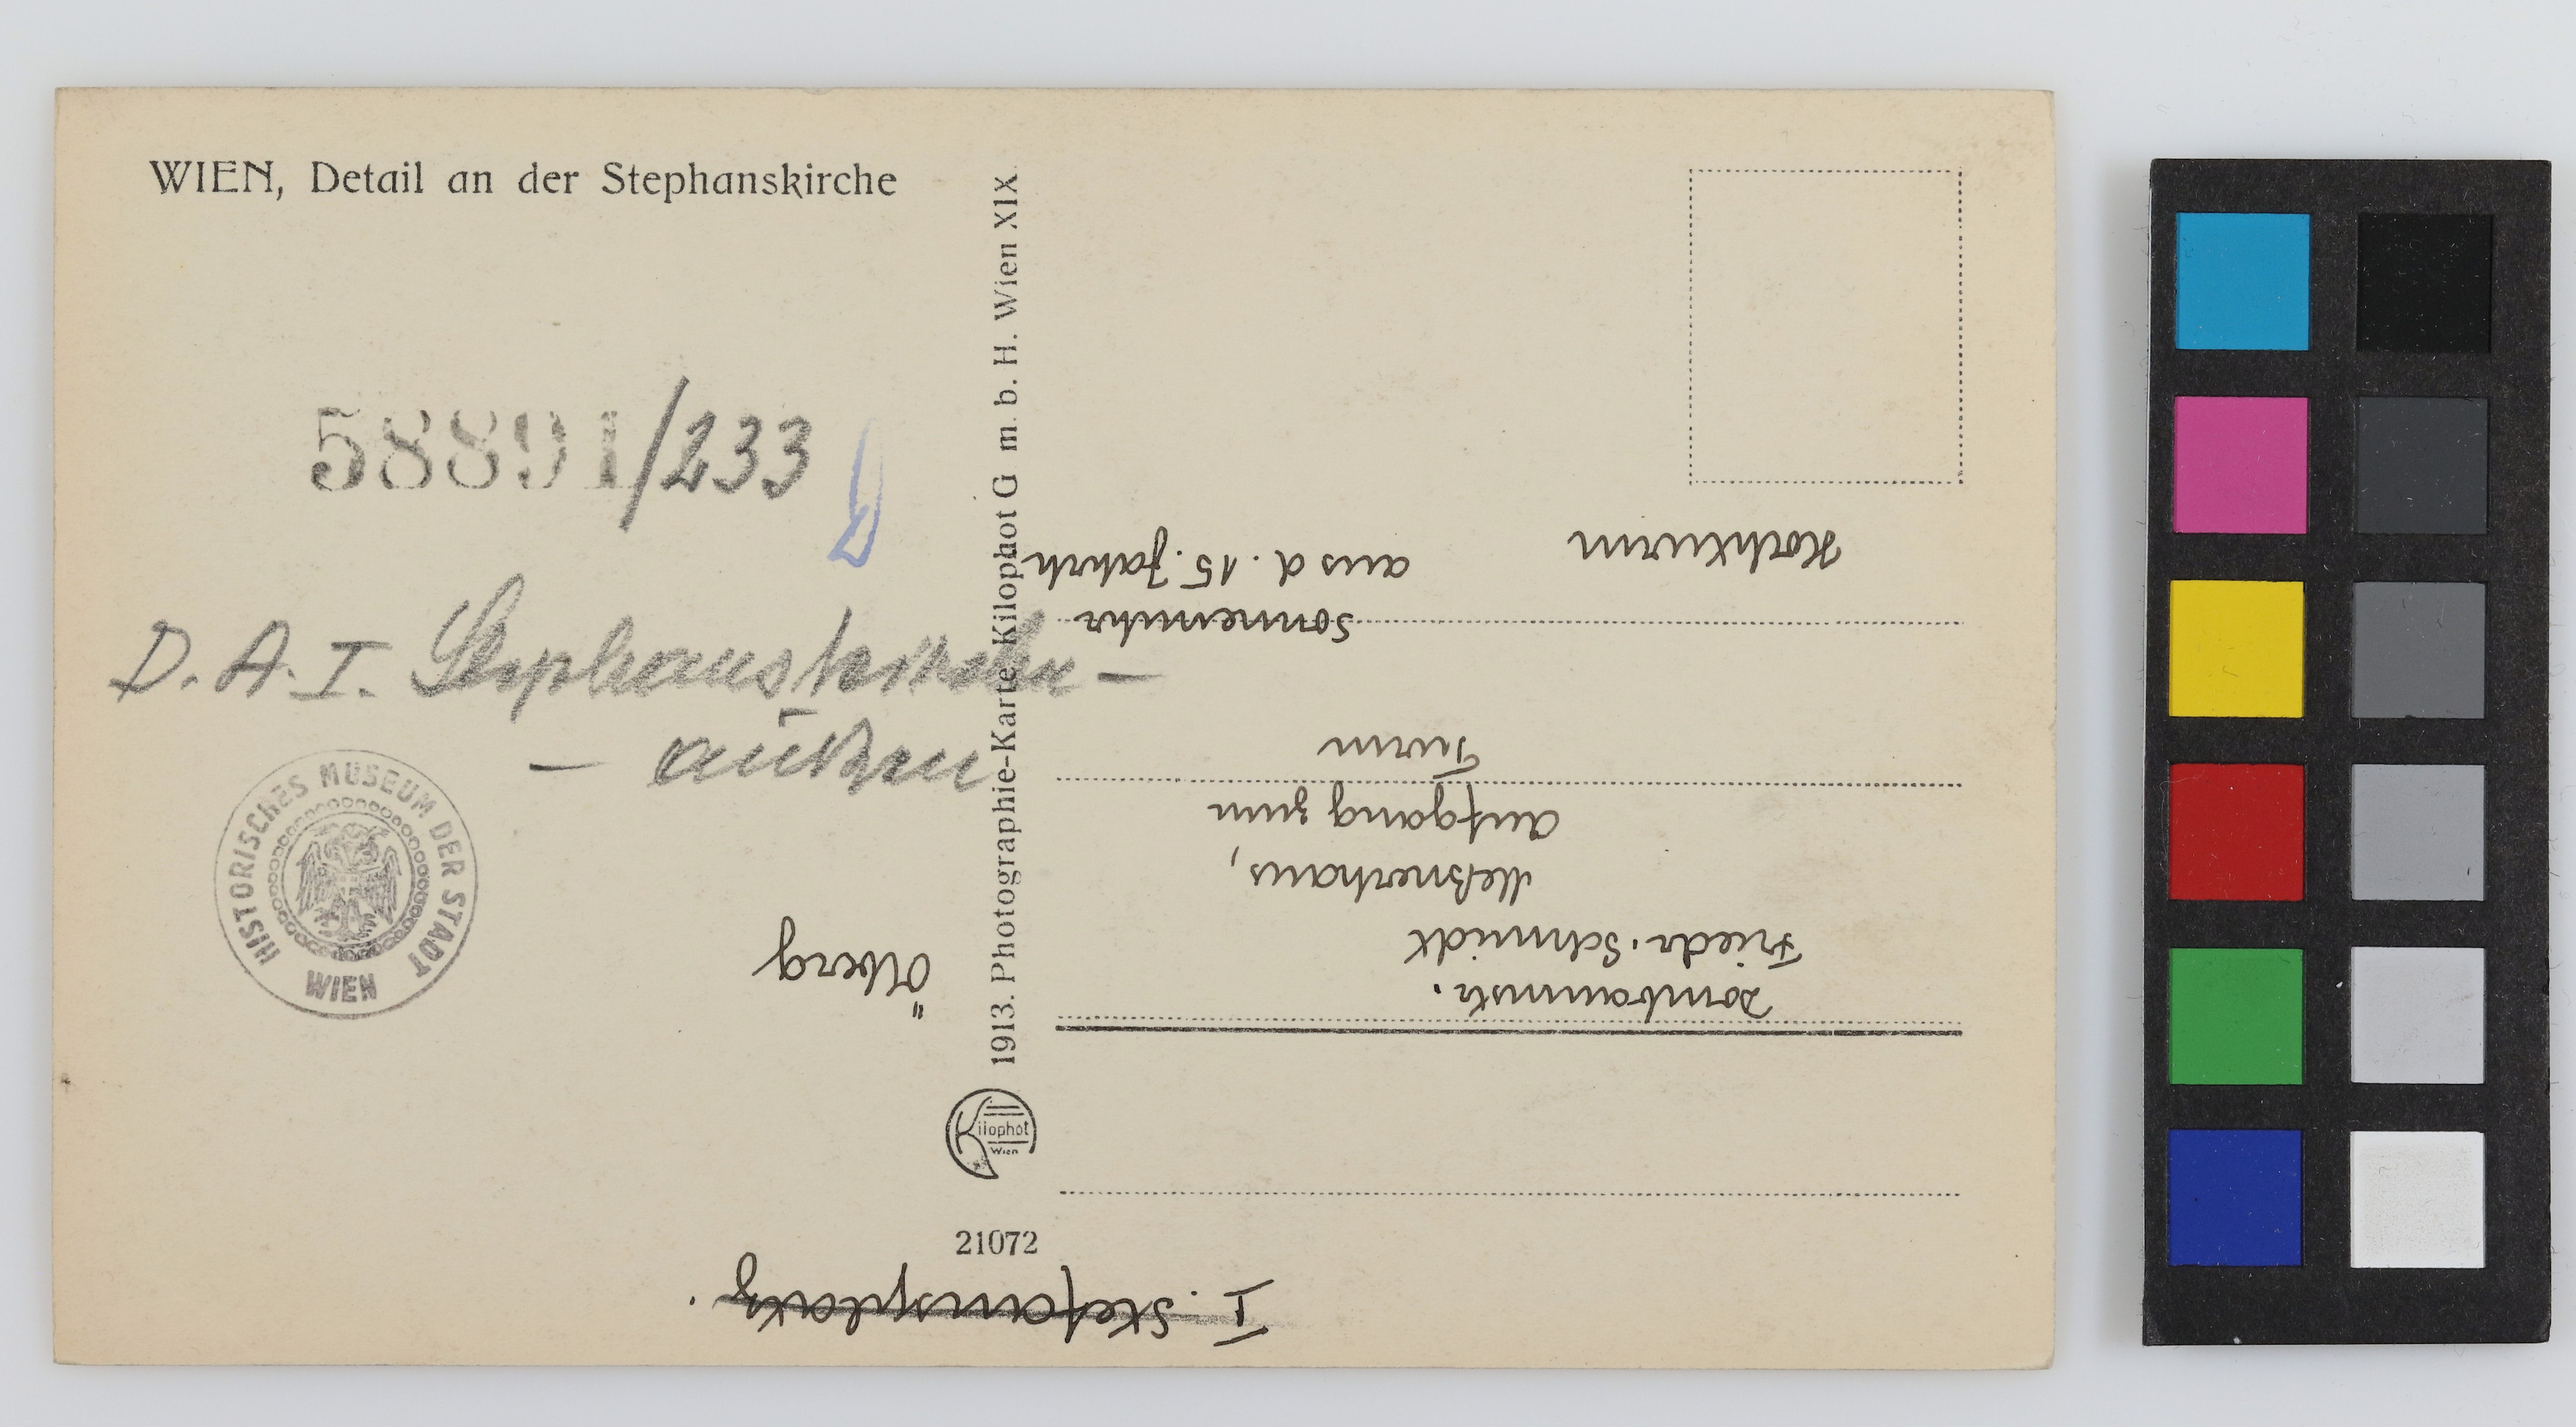 WIEN, Detail an der Stephanskirche
58891/233
D. A. I. Stephanskirche –
– außen
HISTORISCHES MUSEUM DER STADT WIEN
1913. Photographie-Karte Kilophot G m. b. H. Wien XIX.
Kilophot
Wien
21072
I. Stefansplatz.
Dombaumstr.
Friedr. Schmidt
Meßnerhaus,
Aufgang zum
Turm
Ölberg
Sonnenuhr
aus d. 15. Jahrh
Hochturm